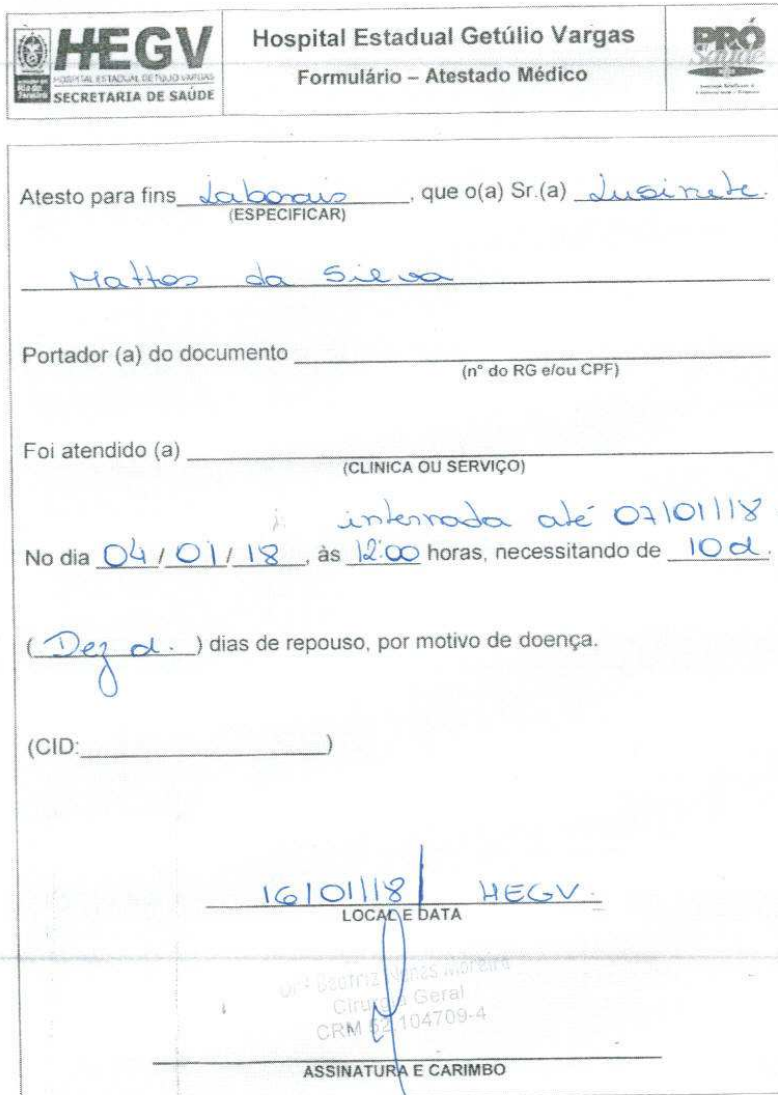 HEGV
HOSPITAL ESTADUAL GETÚLIO VARGAS
SECRETARIA DE SAÚDE
Hospital Estadual Getúlio Vargas
Formulário – Atestado Médico
PRÓ
Saúde
Atesto para fins Laborais, que o(a) Sr.(a) Lusinete.
(ESPECIFICAR)
Mattos da Silva
Portador (a) do documento
(n° do RG e/ou CPF)
Foi atendido (a)
(CLINICA OU SERVIÇO)
internada até 07/01/18
No dia 04/01/18, às 12:00 horas, necessitando de 10 d.
(Dez d.) dias de repouso, por motivo de doença.
(CID: )
16/01/18 | HEGV.
LOCAL E DATA
Beatriz Moreira
Cirurgia Geral
CRM 52 104709-4
ASSINATURA E CARIMBO